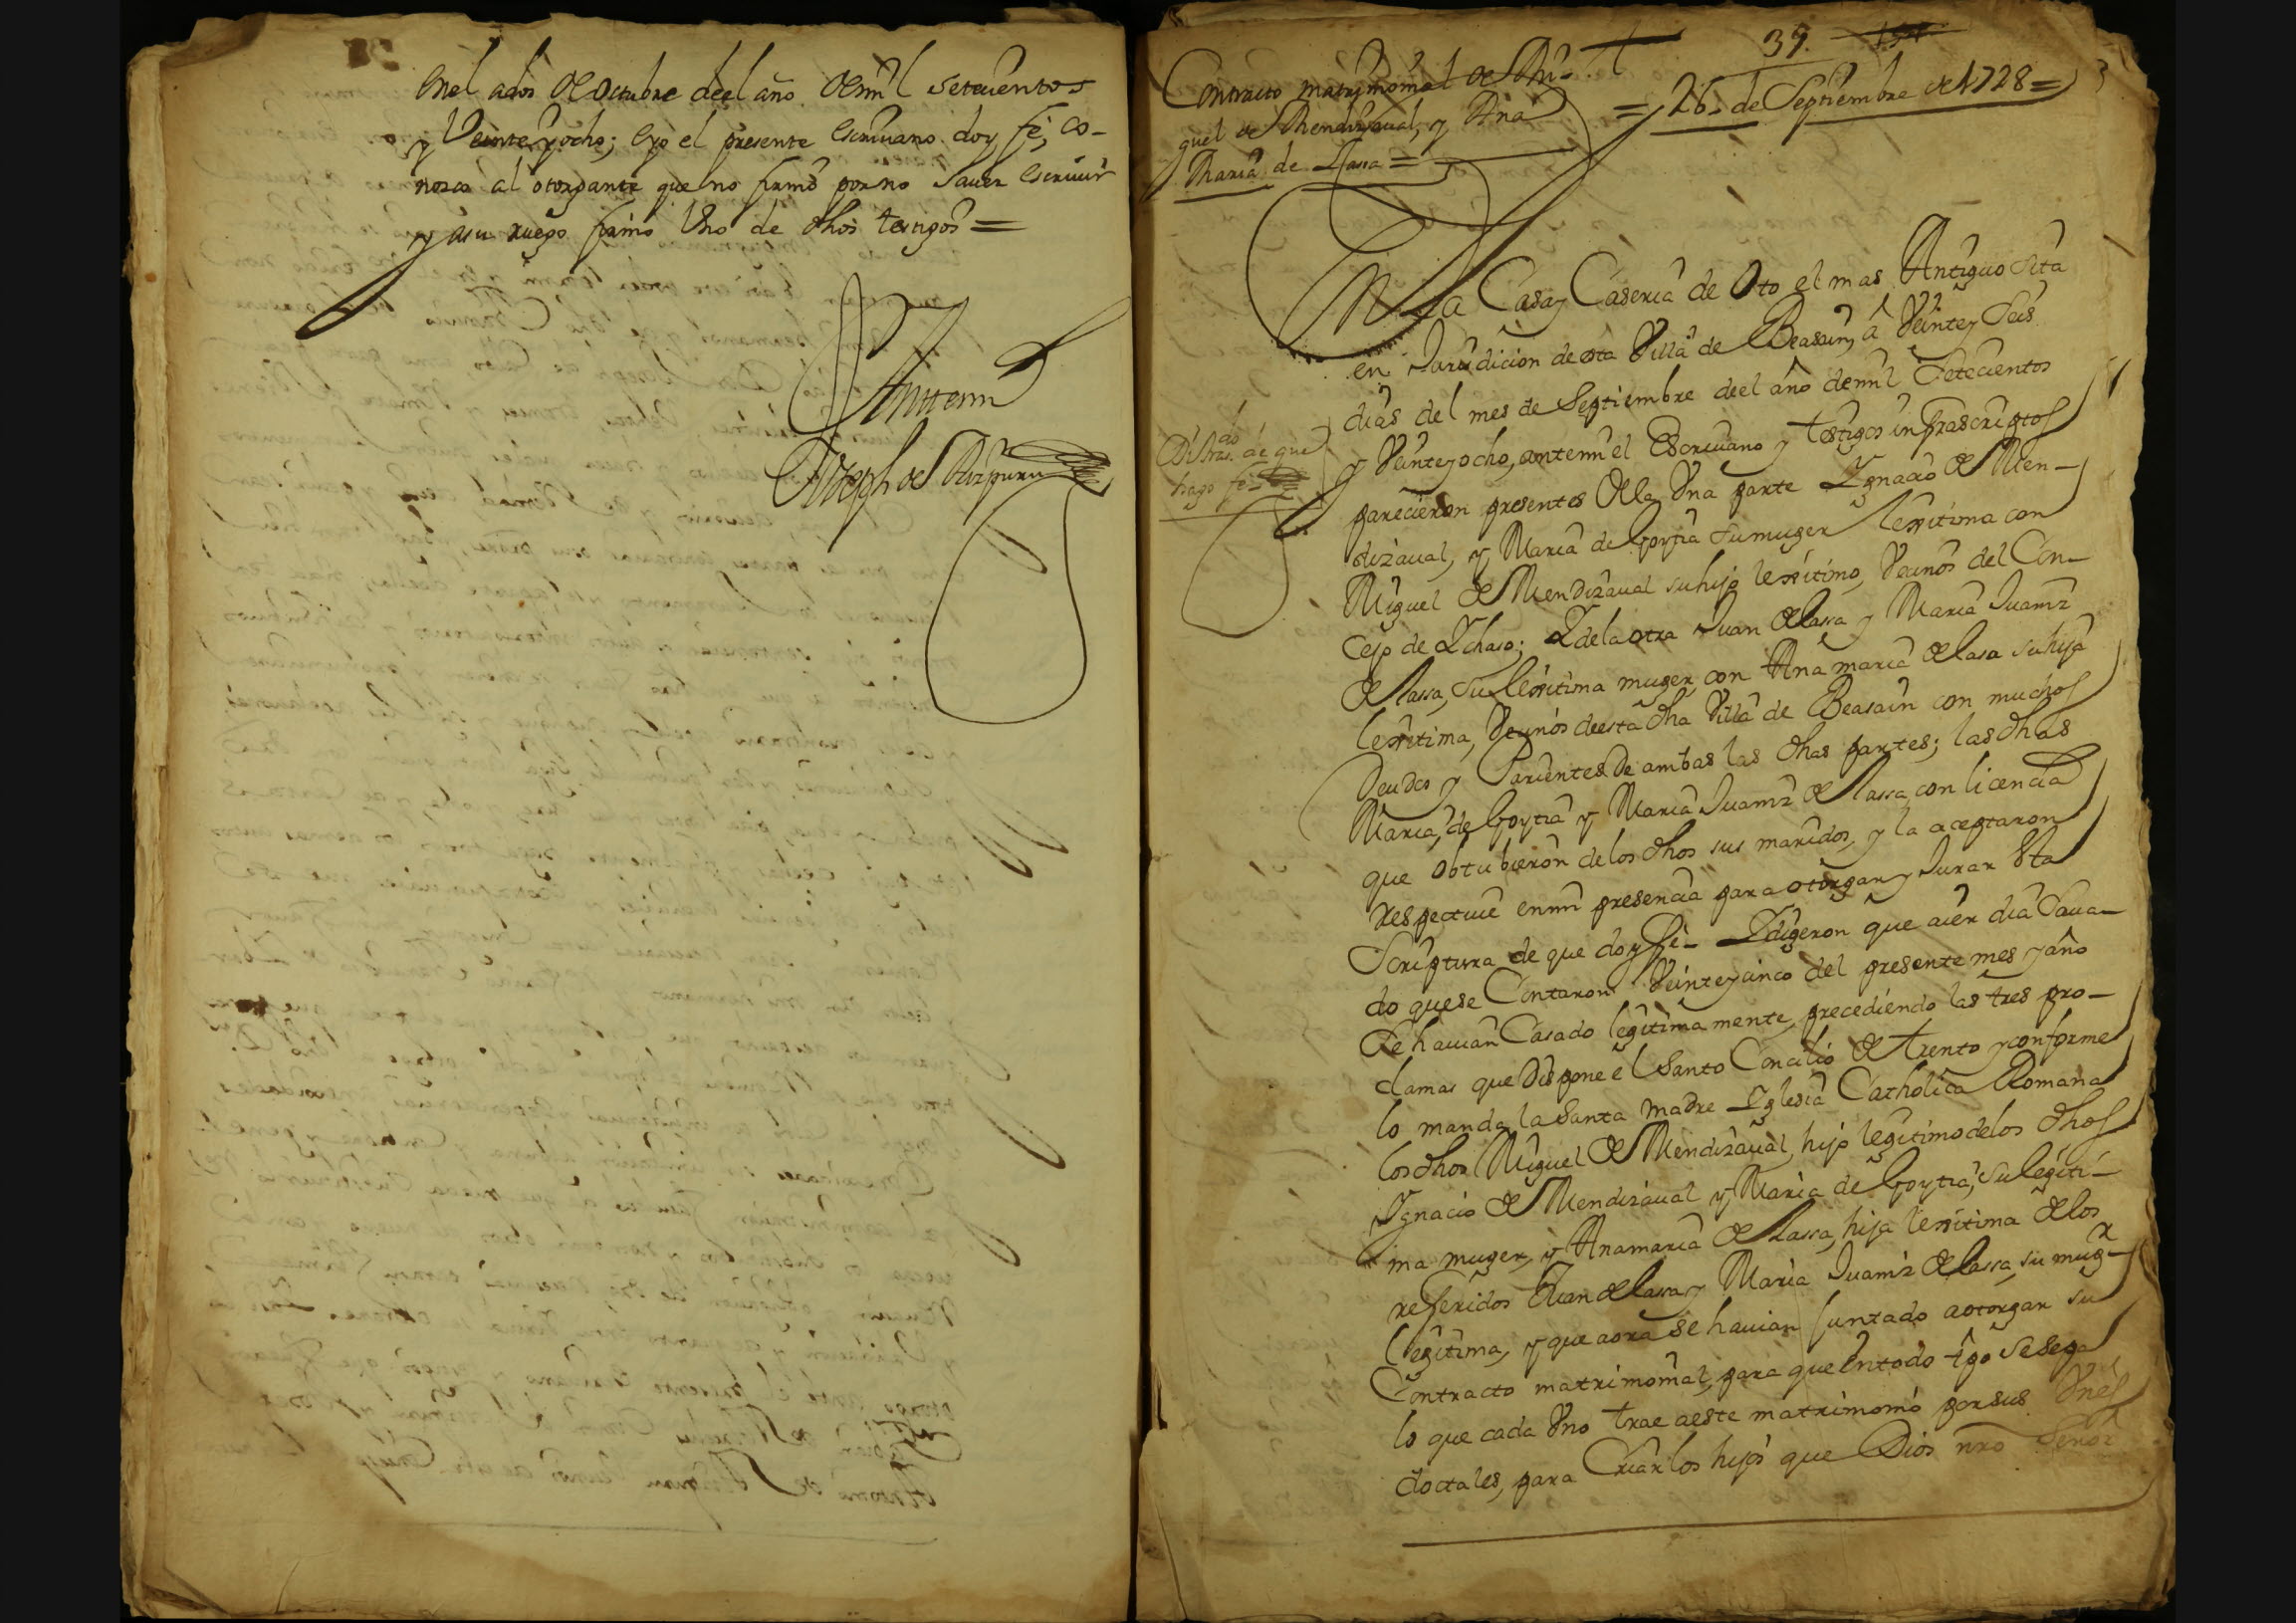 en el a dos de Octubre deel año de mil setecientos
y Veinte y ocho; e yo el presente escriuano doy fé, co-
nozco al otorgante que no firmó por no sauer escriuir
y a su ruego firmo Uno de dhos testigos =
Ante mi
Joseph de Aizpuru
39.
Contracto matrimonial de Mi-
guel de Mendizaual, y Ana
Maria de Lassa =
= 26. de Septiembre de 1728 =
En La Casa y Caseria de Oto el mas Antiguo sita
en Jurisdicion de esta Villa de Beassain, â Veinte y Seis
dias del mes de Septiembre deel año de mil Setecientos
y Veinte y ocho, ante mi el Escriuano y testigos infrascriptos
parecieron presentes de la Una parte Ygnacio de Men-
dizaual, y Maria de Goytia su muger lexitima con
Miguel de Mendizaual su hijo lexitimo, Vecinos del Con-
cejo de Ychaso; Y de la otra Juan de Lassa y Maria Juamz
de Lassa, su lexitima muger, con Ana maria de Lasa su hija
lexitima, Vecinos de esta dha Villa de Beasain con muchos
Deudos y Parientes de ambas las dhas partes; las dhas
Maria, de Goytia y Maria Juamz de Lassa, con licencia
que obtubieron de los dhos sus maridos, y la aceptaron
respectiue en mi presencia para otorgar y Jurar esta
Scriptura de que doy fé - Y digeron que aier dia Saua-
do que se Contaron Veinte y cinco del presente mes y año
Se hauian Casado legitimamente, precediendo las tres pro-
clamas que Dispone el Santo Concilio de Trento y conforme
lo manda la Santa Madre Yglesia Catholica Romana
los dhos Miguel de Mendizaual, hijo legitimo de los dhos
Ygnacio de Mendizaual y Maria de Goytia, su legiti-
ma muger, y Anamaria de Lassa, hija lexitima de los
referidos Juan de Lassa y Maria Juamz de Lassa, su mugr
legitima, y que aora se hauian Juntado a otorgar su
Contracto matrimonial, para que en todo tpo Se sepa
lo que cada Uno trae a este matrimonio por sus Vnes
doctales, para Criar los hijos que Dios nro Señor
hago fé